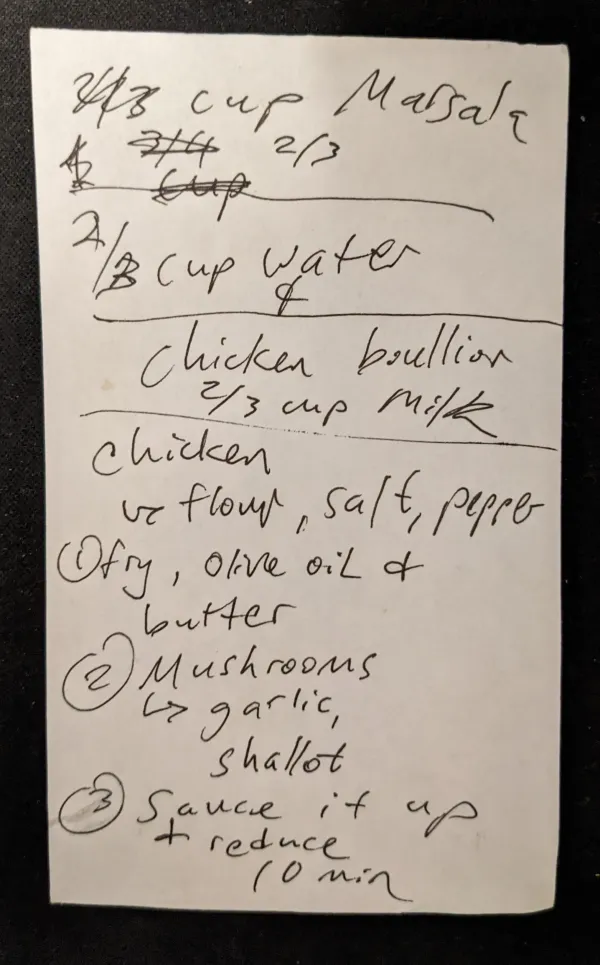 2/3 cup Marsala
3/4 2/3
cup
2/3 cup water
&
chicken boullion
2/3 cup milk
chicken
w flour, salt, pepper
① fry, olive oil &
butter
② Mushrooms
↳ garlic,
shallot
③ Sauce it up
+ reduce
10 min